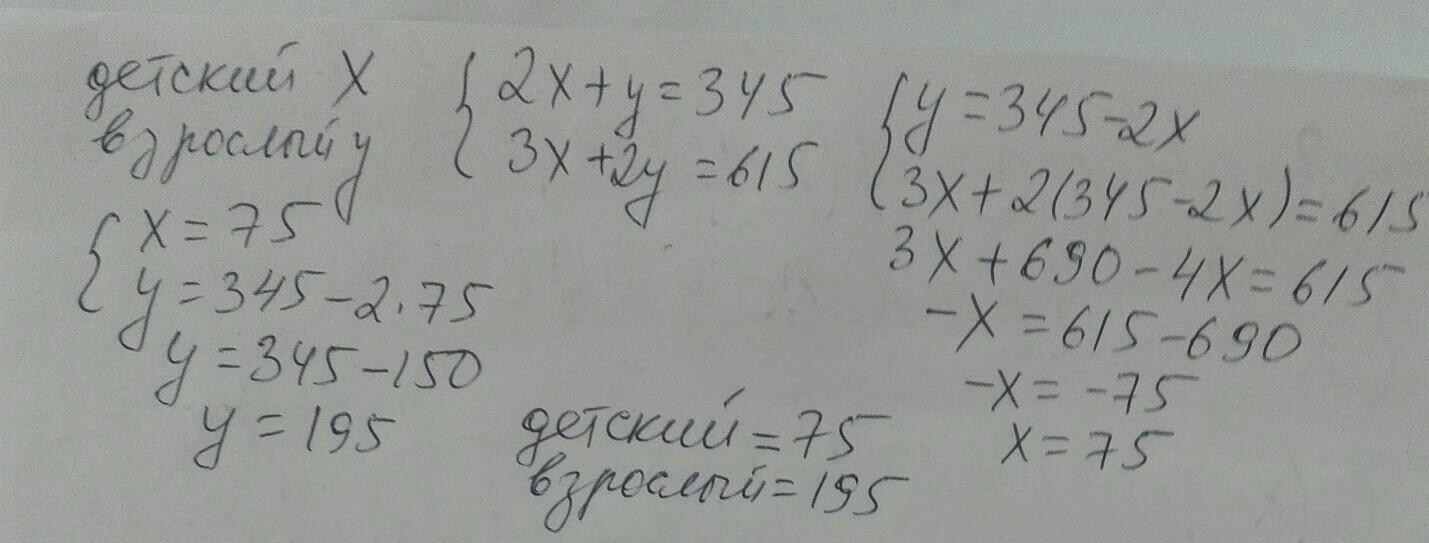 детский x
взрослый y
{2x+y=345
3x+2y=615
{y=345-2x
3x+2(345-2x)=615
3x+690-4x=615
-x=615-690
-x=-75
x=75
{x=75
y=345-2·75
y=345-150
y=195
детский=75
взрослый=195